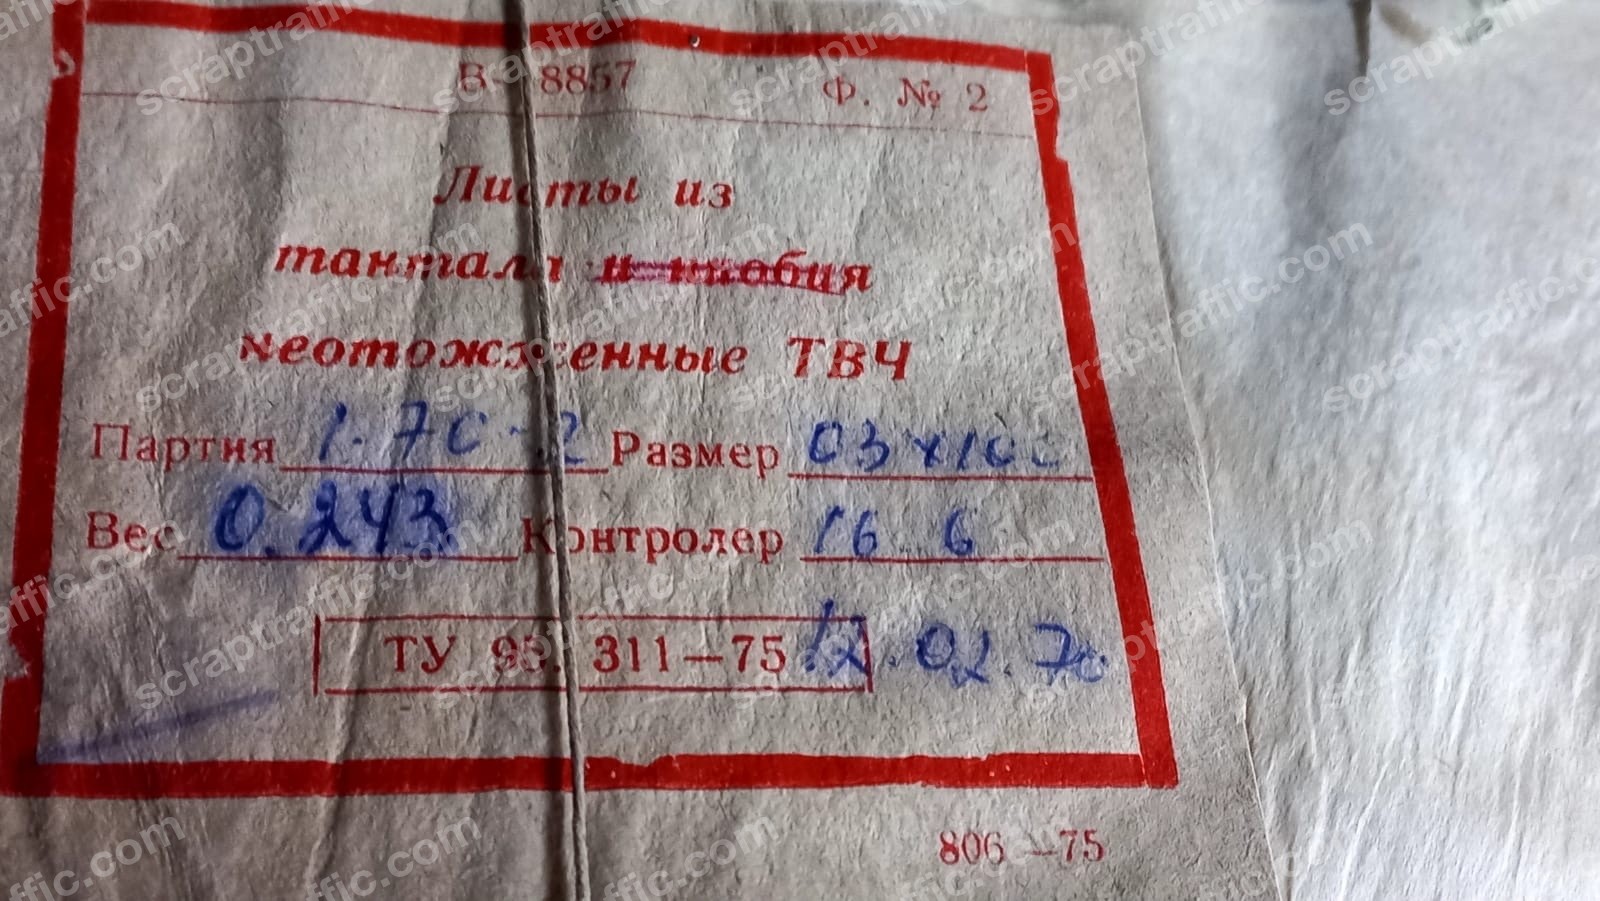 В- 8857 Ф. № 2
Листы из
тантала и ниобия
неотожженные ТВЧ
Партия 1.70-2 Размер 03х100
Вес 0.243 Контролер 16 6
ТУ 95. 311-75 12.02.76
806-75
scraptraffic.com